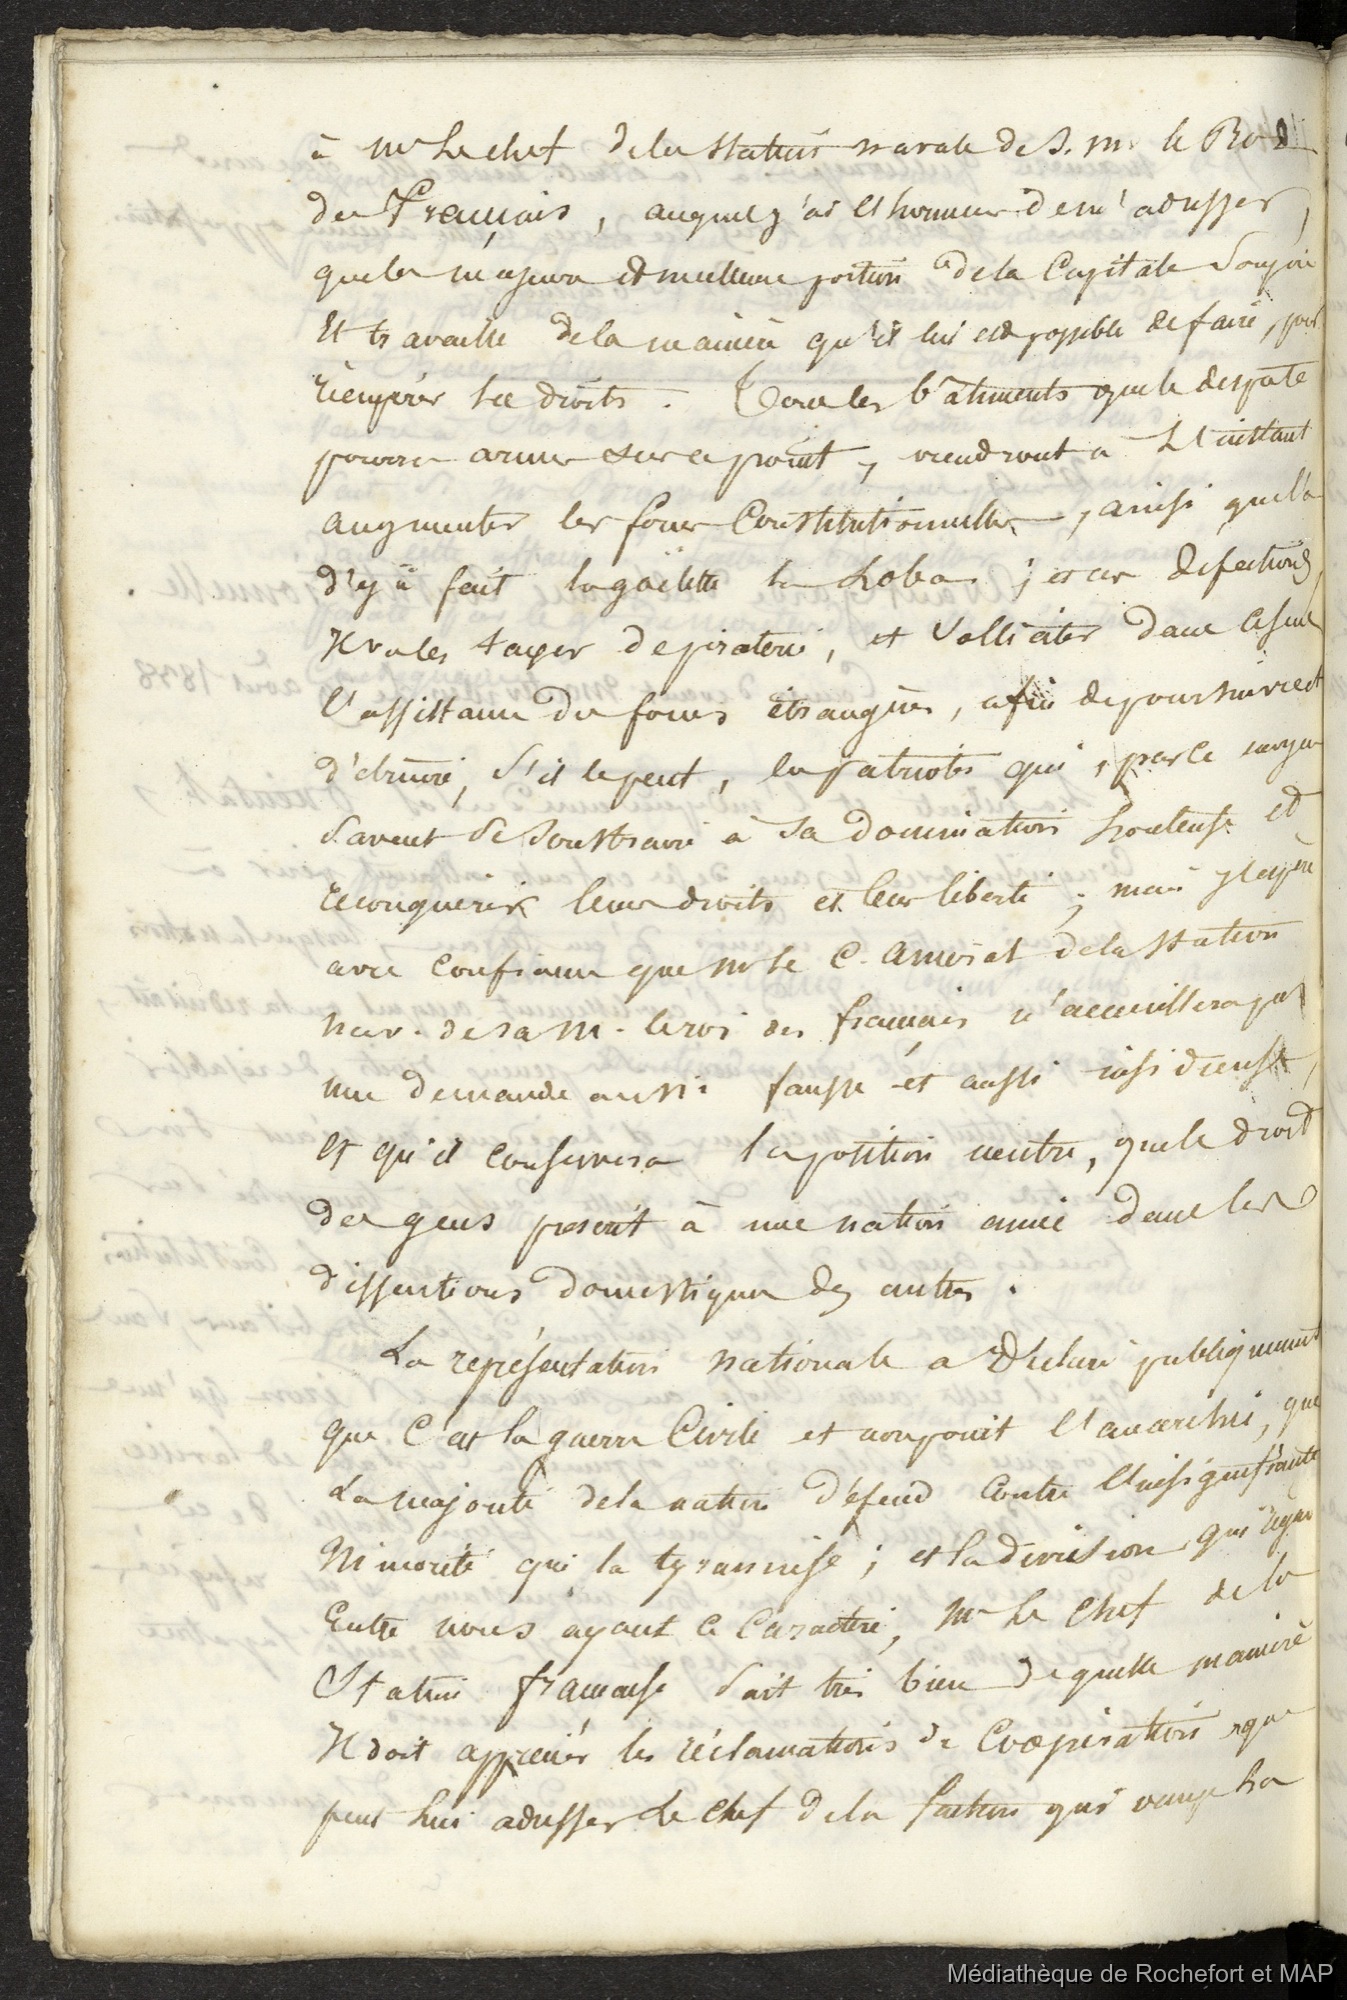 à mr Le chef de la station navale de S. m. le Roi
des Français, auquel j'ai l'honneur de m'adresser,
que la majeure et meilleure portion de la Capitale soupire
Et travaille de la manière qu'il lui est possible de faire, pour
récupérer ses droits. Tous les bâtiments que le despote
pourra armer sur ce point, viendront à L'instant
augmenter les forces Constitutionnelles, ainsi que l'a
d'éjà fait la goëlette la Loba; et ces défections,
Il va les taxer de piraterie, et solliciter dans ce sens
l'assistance des forces étrangères, afin de poursuivre et
d'étruire, s'il le peut, les patriotes qui, par ce moyen
savent se soustraire à sa domination honteuse et
reconquérir leurs droits et leur liberté; mais j'espère
avec confiance que mr le C. Amiral de la station
nav. de sa M. le roi des français n'accueillera pas
une demande aussi fausse et aussi insidieuse,
Et qu'il conservera la position neutre, que le droit
des gens prescrit à une nation amie dans les
dissentions domestiques des autres.
La représentation nationale a déclaré publiquement
que C'est la guerre Civile et non point l'anarchie, que
La majorité de la nation d'éfend contre l'insignifiante
Minorité qui la tyrannise; et la division qui règne
Entre nous ayant ce Caractère, Mr Le Chef de la
Station française sait très bien de quelle manière
Il doit apprécier les réclamations de Coopération que
peut lui adresser Le Chef de la faction qui ravage la
Médiathèque de Rochefort et MAP